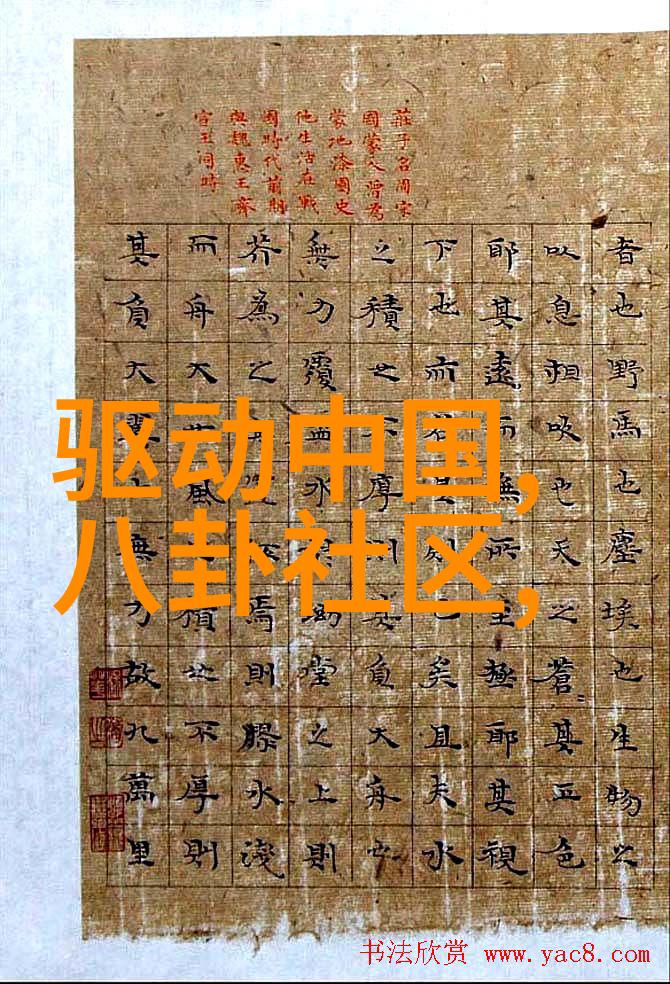 莊子名周宋
國蒙人曾為
蒙地漆園史
他生活在戰
國時代前期
與魏惠王齊
宣王同時
者也野馬也塵埃也生物之
以息相吹也天之蒼其正色
耶其遠而無所至極耶其視
下也而若是則已矣且夫水
之積也不厚則其負大舟也
無力覆盃水坳堂之上則
芥為之焉則膠水淺
而舟大風積也不厚則
其負大翼也無力故九萬里
驱动中国,
八卦社区,
书法欣赏 www.yac8.com